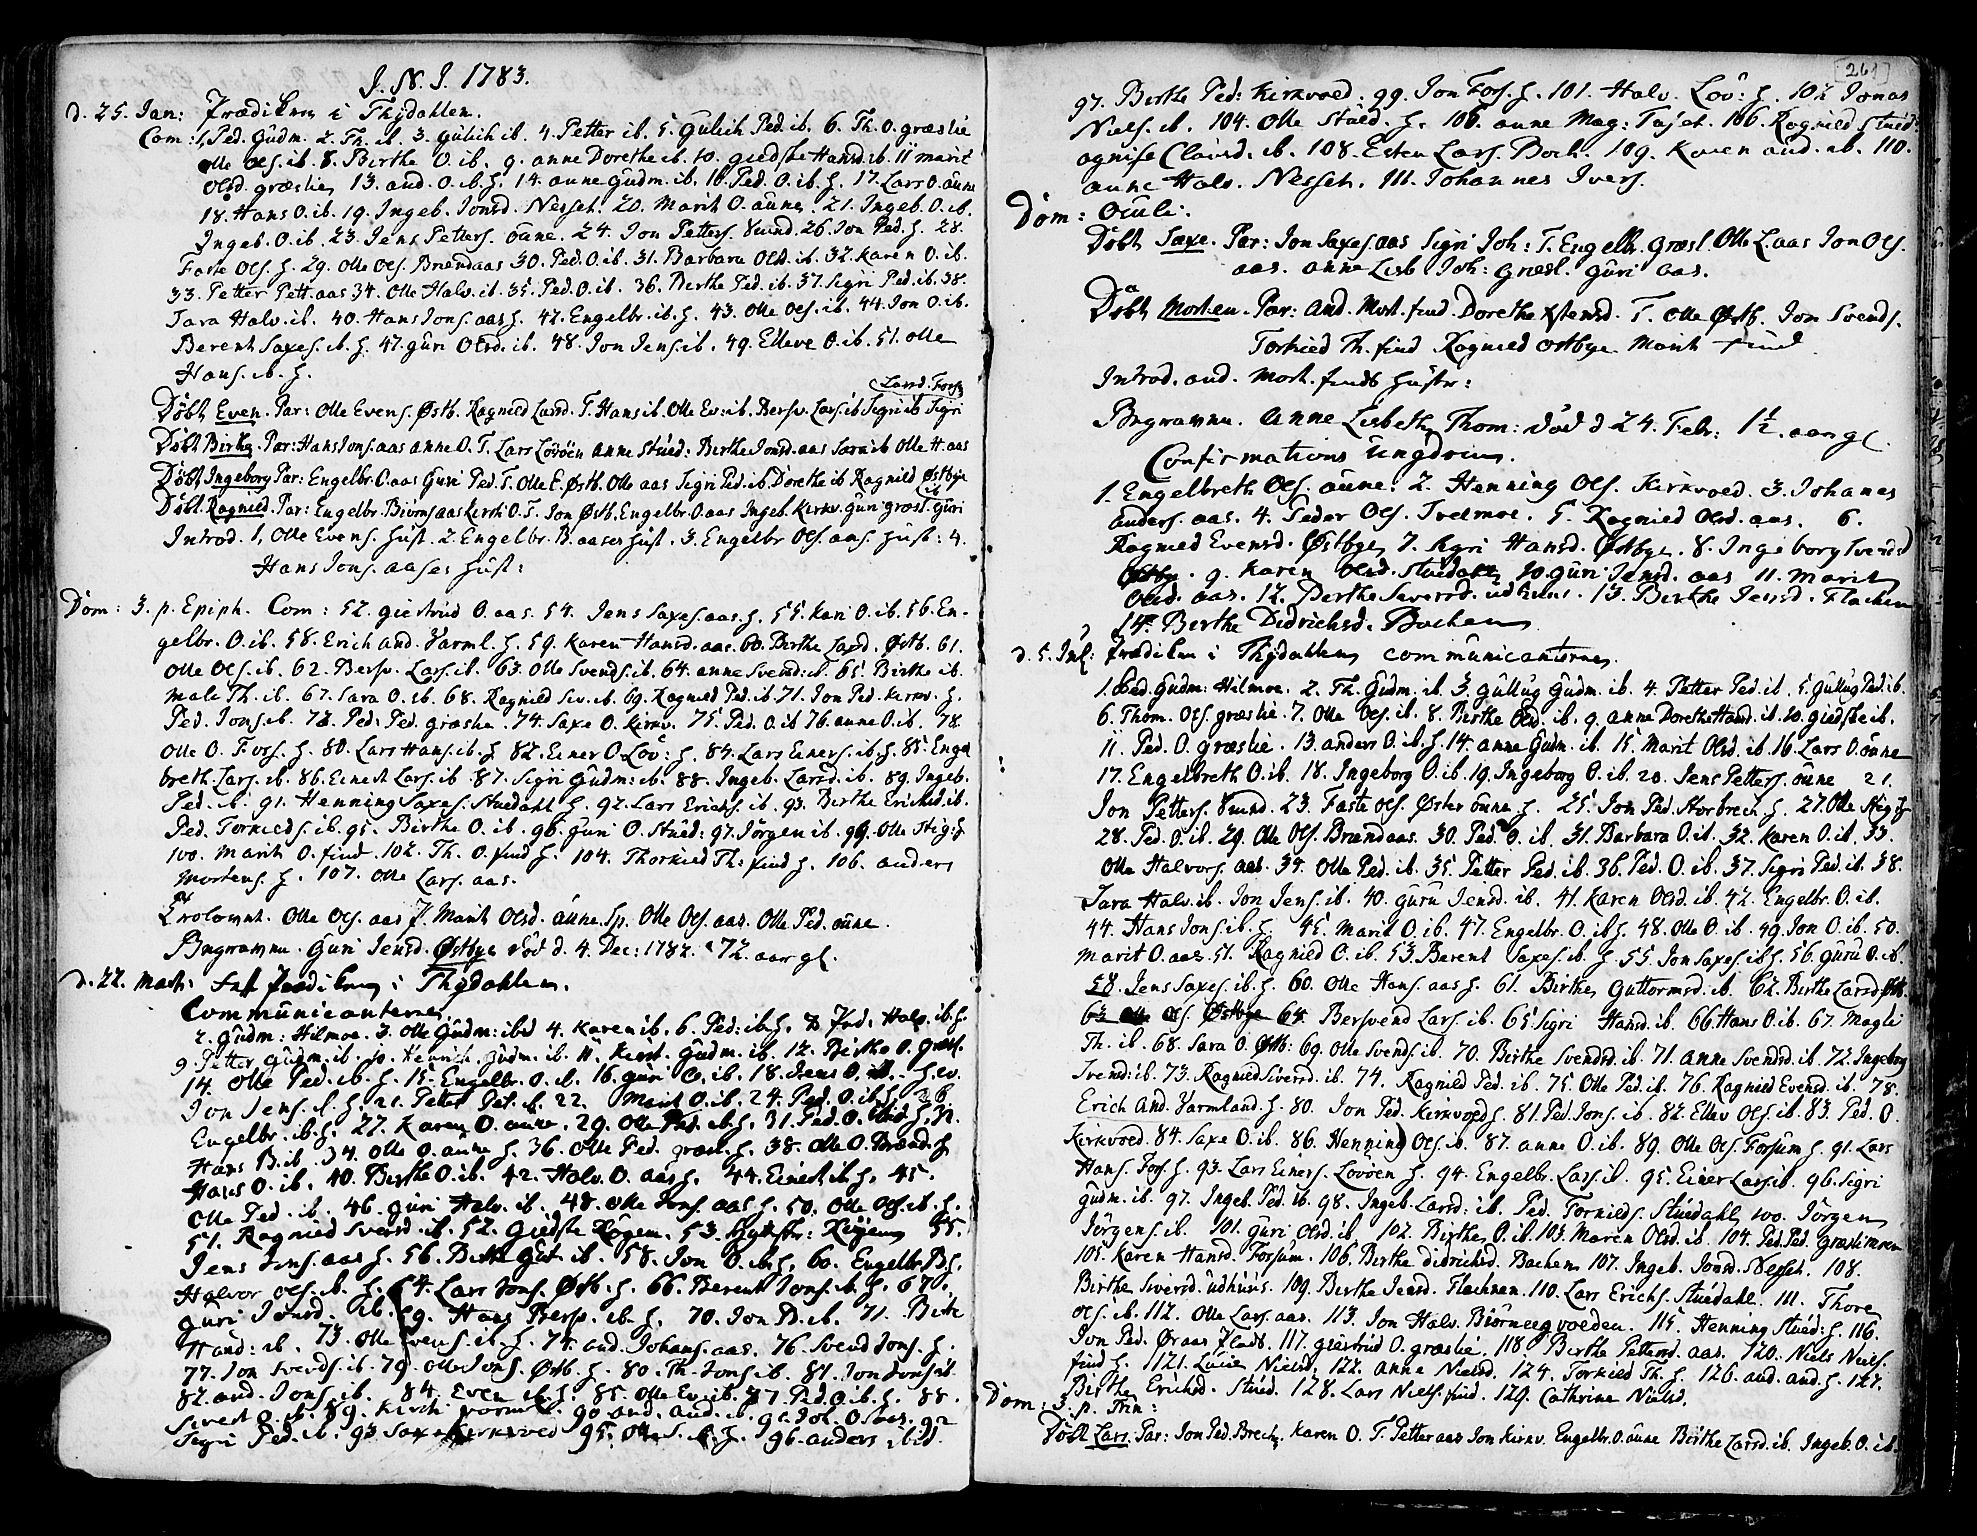 J. N. J. 1783.
d. 25. Jan: Prædiken i Thydahlen.
Com: 1, Ped. Gudm. 2. Th. ib. 3. Gulich ib. 4. Petter ib. 5. Gulich Ped. ib. 6. Th. O. græslie
olle Ols. ib. 8. Birthe O. ib. 9. anne Dorethe ib. 10. giedske Hansd. ib. 11 marit
Olsd. græslie, 13. and. O. ib. h. 14. anne Gudm. ib. 16. Ped. O. ib. h. 17. Lars O. aune
18. Hans O. ib. 19. Ingeb. Jonsd. Nesset. 20. Marit O. aune. 21. Ingeb. O. ib.
Ingeb. O. ib. 23. Jens Petters. aune. 24. Jon Petters. 26. Jon Ped. h. 28.
Faste Ols. h. 29. Olle Ols. Brændaas 30. Ped. O. ib. 31. Barbara Olsd. ib. 32. Karen O. ib.
33. Petter Pett. aas 34. Olle Halv. ib. 35. Ped. O. ib. 36. Birthe Ped. ib. 37. Sigri Ped. ib. 38.
Sara Halv. ib. 40. Hans Jons. aas h. 42. Engelbr. ib. h. 43. Olle Ols. ib. 44. Jon O. ib.
Berent Saxes. ib. h. 47. guri Olsd. ib. 48. Jon Jens. ib. 49. Elleve O. ib. 51. olle
Hans. ib. h.
Larsd. Fors.
Döbt Even. Par: Olle Evens. Østb. Ragnied Larsd. T. Hans ib. Olle Ev: ib. Bersv. Lars. ib Sigri ib Sigri
Döbt Birthe. Par: Hans Jons. aas anne O. T. Lars Lövöen anne Stued: Birthe Jonsd. aas Sara ib Olle H. aas
Döbt Ingeborg Par: Engelbr. O. aas Guri Ped. T. Olle E. Østb. Olle aas Sigri Ped. ib. Dorethe ib Ragnied Østbye
Döbt Ragnied. Par: Engelbr. Biörns. aas Kirsti O. T. Jon Østb. Engelbr. O. aas Ingeb. Kirkv. Guri græsl. Guri ib
Introd. 1, Olle Evens. Hust. 2. Engelbr. B. aases Hust. 3. Engelbr Ols. aas Hust: 4.
Hans Jons. aases Hust:
Dom: 3. p. Epiph. Com: 52. giertrud O. aas. 54. Jens Saxes. aas. h. 55. Kari O. ib. 56. En-
gelbr. O. ib. 58. Erich and. Værml. h. 59. Karen Hansd. aas. 60. Birthe Larsd. Østb. 61.
Olle Ols. ib. 62. Bersv. Lars. ib. 63. Olle Svends. ib. 64. anne Svend: ib. 65. Birthe ib.
Male Th. ib. 67. Sara O. ib. 68. Ragnied Siv. ib. 69. Ragnied Ped. ib. 71. Jon Ped. Kirkv. h.
Ped. Jons. ib. 73. Ped: Ped. græslie. 74. Saxe O. Kirkv. 75. Ped. O. ib 76. anne O. ib. 78.
Olle O. Fors. h. 80. Lars Hans. ib. h 82. Einer O. Löv: h. 84. Lars Einers. ib. h. 85. Engel
breth. Lars. ib. 86. Einert Lars. ib 87. Sigri Gudm: ib. 88. Ingeb. Larsd. ib. 89. Ingeb.
Ped. ib. 91. Henning Saxes. Stuedahl h. 92. Lars Erichs. ib. 93. Birthe Erichsd. ib.
Ped. Torkieds. ib. 95. Birthe O. ib. 96. Guri O. Stued: 97. Jörgen ib. 99. Olle Stig h
100. Marit O. find. 102. Th. O. find h. 104. Thorkied Th: find h. 106. anders
Mortens. h. 107. Olle Lars. aas.
Trolowet. Olle Ols. aas J. Marit Olsd. aune. Sp. Olle Ols. aas. Olle Ped. aune.
Begrawen. Guri Jensd. Østbye död d. 4. Dec: 1782. 72. aar gl.
d. 22. Mart: prædiken i Thydahlen.
Communicanterne,
2. Gudm: Hilmoe. 3. Olle Gudm: ibid 4. Karen ib. 6. Ped: ib. h. Halv. ib. h.
9. Petter Gudm. ib. 10. Gudm. ib. 11. Gudm. ib. 12. Birthe O. græsl.
14. Olle Ped. ib. h. 15. Engelbr. O. ib. 16. guri O. ib. 18. Jens O. ib.
Jon Jens. h. 21. Petter Pet. 22. Marit O. ib. 24. Ped. O. ib. h. 26.
Engelbr. ib. h. 27. Karen O. aune. 29. Olle Ped. ib. h. 31. Ped. O. ibid. h.
Hans B. ib. 34. Olle O. aune h. 36. Olle Ped. græsl. h. 38. Olle O. Brænd. h
Hans O. ib. 40. Birthe O. ib. 42. Halv. O. aas h. 44. Einert ib. h. 45.
Olle Ped. ib. 46. guri Halv. ib. 48. Olle Jons. aas h. 50. Olle Ols. ib. h.
51. Ragnied Sversd. ib. 52. giedske Kögem. 53. 55.
Jens Jons. aas h. 56. Birthe Gut. ib. 58. Jon O. ib. h. 60. Engelbr. B. h.
Halvor Ols. ib. h. 64. Lars Jons. Østb. h. 66. Berent Jons. ib. h. 67.
guri Jonsd. ib. 69. Hans Bersv. ib. h. 70. Jon P. ib. 71. Birte
Hand: ib. 73. Olle Svens. ib. h. 74. and Johans. aas. 76. Svend Jons. h.
77. Jon Svends. ib. 79. Olle Jons. Østb. h. 80. Th. Jons. ib. 81. Jon Jons. ib
82. and. Jons. ib. 84. Even ib. h. 85. Olle Ev: ib. 87. Ped. O. ib. h. 88.
Sivert O. ib. 89. 90 and. and. ib. 91. Joh. O. 92
Sigri Ped. ib. 93 Saxe Kirkvoed 95. Olle ib. h. 96. anders ibid.
[261]
97. Birthe Ped: Kirkvoed. 99. Jon Fors. h. 101. Halv. Löv: h. 102 Jonas
Niels. ib. 104. Olle Stued. h. 106. anne Mag: 106. Ragnied Stued:
agnise Clausd. ib. 108. Esten Lars. Boch. 109. Karen aud. ib. 110.
anne Halv. Nesset. 111. Johannes Ivers.
Dom: Oculi.
Döbt Saxe. Par: Jon Saxes. aas Sigri Joh: T. Engelb. græsl. Olle L. aas Jon Ols.
aas. anne Lisb Joh: græsl. guri aas.
Döbt Morten. Par: and. Mort. find. Dorethe T. Olle Østb. Jon Svends.
Torkied Th. find Ragnied Østbye Marit find
Introd. and. Mort. finds Hustr:
Begrawen. Anne Lisbeth Thom: död d 24. Febr: 1½. aar gl.
Confirmations Ungdom.
1. Engelbreth Ols. aune. 2. Henning Ols. Kirkvoed. 3. Johanes
anders. aas. 4. Peder Ols. 5. Ragnied Olsd. aas. 6.
Ragnied Evensd. Østbye, 7. Sigri Hansd. Østbye. 8. Ingeborg Svensd
Østbye. 9. Karen Olsd. Stuedahl, 10. guri Jensd. aas 11. Marit
Olsd. aas. 12. Berthe Siversd. udhuus. 13. Birthe Jensd. Flachen
14. Berthe Didrichsd. Bachen
d. 5. Jul: Prædiken i Thydahlen communicanterne,
1. Ped. Gudm: Hilmoe. 2. Th. Gudm. ib. 3. Gullug Gudm. ib. 4. Petter Ped. ib. 5. Gullug Ped. ib.
6. Thom. Ols græslie. 7. Olle Ols. ib. 8. Birthe Olsd. ib. 9. anne Dorethe Hansd. ib. 10. giedske ib.
11. Ped. O. græslie. 13. anders O. ib. h. 14. anne Gudm. ib. 15. Marit Olsd. ib. 16. Lars O. aune
17. Engelbreth O. ib. 18. Ingeborg O. ib. 19. Ingeborg O. ib. 20. Jens Petters. aune 21.
Jon Petters. 23. Faste Ols. Øster aune h. 25. Jon Ped. Storbrech h. 27. Olle Stig h
28. Ped. O. ib. 29. Olle Ols. Brændaas. 30. Ped O. ib. 31. Barbara O. ib. 32. Karen O. ib. 33.
Olle Halvors. aas. 34. Olle Ped. ib. 35. Petter Ped. ib. 36. Ped. O. ib. 37. Sigri Ped. ib. 38.
Sara Halv. ib. Jon Jens. ib. 40. guru Jensd. ib. 41. Karen Olsd. ib. 42. Engelbr. O. ib.
44. Hans Jons. ib. h. 45. Marit O. ib. 47. Engelbr. O. ib h. 48. Olle O. ib. 49. Jon O. ib. 50.
Marit O. aas. 51. Ragnied O. ib. 53. Berent Saxes. ib. h 55. Jon Saxes. ib h. 56. guru O. ib.
58. Jens Saxes. ib. h. 60. Olle Hans. aas h. 61. Birthe Guttormsd. ib. 62. Birthe Larsd Østb.
63 Olle Ols. Østbye 64. Bersvend Lars. ib. 65. Sigri Hansd. ib. 66. Hans O. ib. 67. Magli
Th. ib. 68. Sara O. Østb: 69. Olle Svends. ib. 70. Birthe Svendsd. ib. 71. anne Svendsd. ib. 72. Ingeborg
Svend: ib. 73. Ragnied Siversd. ib. 74. Ragnied Ped. ib. 75 Olle Ped. ib. 76. Ragnied Evensd. ib. 78.
Erich and. Værmland. h. 80. Jon Ped. Kirkvoed h. 81. Ped Jons. ib. 82. Ellev Ols ib. 83. Ped. O.
Kirkvoed. 84. Saxe O. ib. 86. Henning Ols. ib. 87. anne O. ib. 89. Olle Ols. Forsum h. 91. Lars
Hans. Fors. h. 93. Lars Einers. Lovöen h. 94. Engelbr. Lars. ib. 95. Einer Lars. ib. 96. Sigri
gudm. ib. 97. Ingeb. Ped. ib. 98. Ingeb. Larsd: ib. Ped. Torkieds. Stuedahl, 100. Jörgen
Jörgens. ib. 101. guri Olsd. ib. 102. Birthe O. ib. 103. Maren Olsd. ib. 104. Ped. Ped. græslimoen
105. Karen Hansd. Forsum. 106. Birthe didrichsd. Bachen. 107. Ingeb. Jonsd. Nesset. 108.
Birthe Siversd. udhuus. 109. Birthe Jensd. Flachnen. 110. Lars Erichs. Stuedahl. 111. Thore
Ols. ib. 112. Olle Lars. aas. 113. Jon Halv. Biörneegvolden. 115. Henning Stued: h. 116.
Jon Ped. Øvaas 117. giertrud O. græslie. 118 Birthe Petersd. aas. 120. Niels Niels.
find h. 1121. Lucie Nielsd. 122. anne Nielsd. 124. Torkied Th. h. 126. and. and. h. 127.
Birthe Erichsd. Stued. 128. Lars Niels. find. 129. Cathrine Nielsd.
Dom: 3. p. Trin:
Döbt Lars. Par: Jon Ped. Brech. Karen O. T. Petter aas Jon Kirkv. Engelbr. O. aune Birthe Larsd. ib. Ingeb. O. ib.